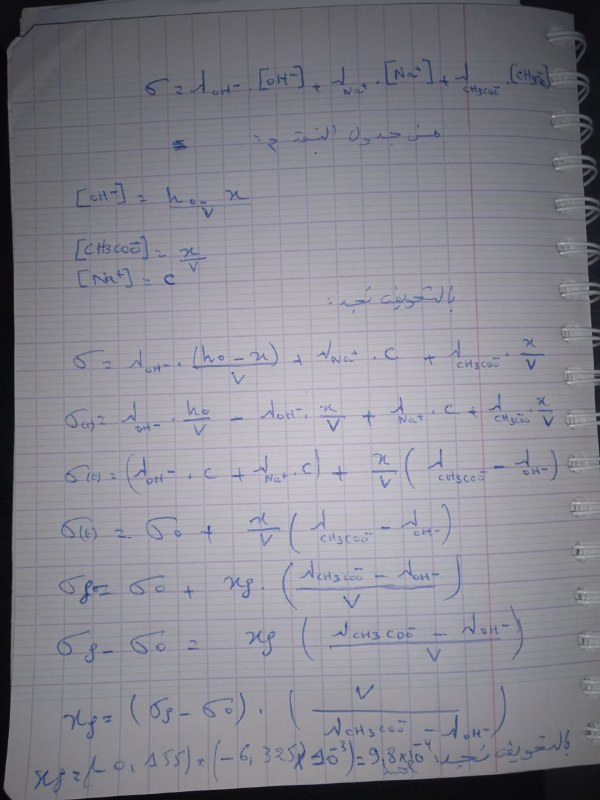 σ = λOH⁻ · [OH⁻] + λNa⁺ · [Na⁺] + λCH3COO⁻ · [CH3COO⁻]
من جدول التقدم:
[OH⁻] = (n₀ - x)/V
[CH3COO⁻] = x/V
[Na⁺] = C
بالتعويض نجد:
σ = λOH⁻ · (n₀ - x)/V + λNa⁺ · C + λCH3COO⁻ · x/V
σ(t) = λOH⁻ · n₀/V - λOH⁻ · x/V + λNa⁺ · C + λCH3COO⁻ · x/V
σ(t) = (λOH⁻ · C + λNa⁺ · C) + x/V (λCH3COO⁻ - λOH⁻)
σ(t) = σ₀ + x/V (λCH3COO⁻ - λOH⁻)
σf = σ₀ + xf · ((λCH3COO⁻ - λOH⁻)/V)
σf - σ₀ = xf ((λCH3COO⁻ - λOH⁻)/V)
xf = (σf - σ₀) · (V/(λCH3COO⁻ - λOH⁻))
بالتعويض نجد:
xf = (-0,155) × (-6,325 × 10⁻³) = 9,8 × 10⁻⁴ mol